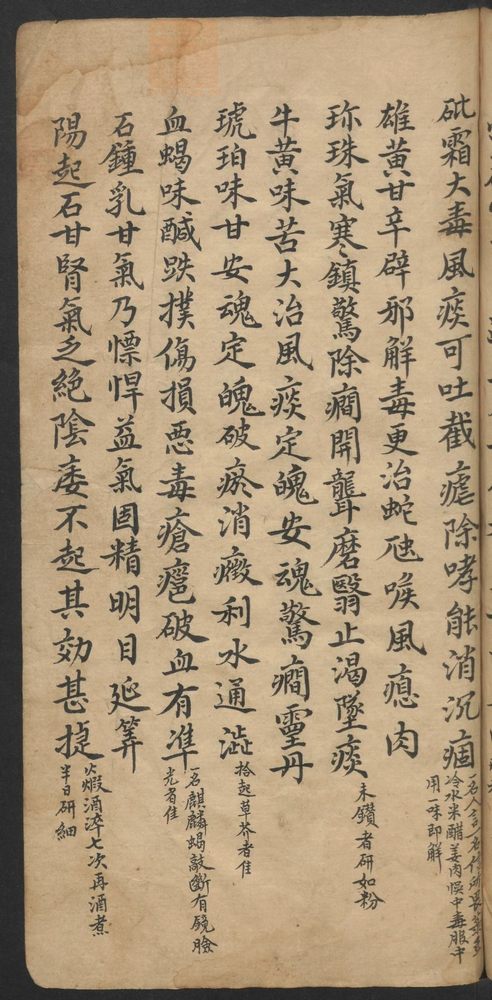 砒霜大毒風痰可吐截瘧除哮能消沉痼
一名人言一名信所畏菉豆
冷水米醋姜肉悞中毒服中
用一味即解
雄黃甘辛辟邪解毒更治蛇虺喉風瘜肉
珍珠氣寒鎮驚除癇開聾磨翳止渴墜痰
未鑽者研如粉
牛黃味苦大治風痰定魄安魂驚癇靈丹
琥珀味甘安魂定魄破瘀消癥利水通澁
拾起草芥者佳
血蝎味醎跌撲傷損惡毒瘡癰破血有準
一名麒麟蝎敲斷有鏡臉
光者佳
石鍾乳甘氣乃慓悍益氣固精明目延筭
陽起石甘腎氣乏絕陰痿不起其効甚捷
火煅酒淬七次再酒煮
半日研細